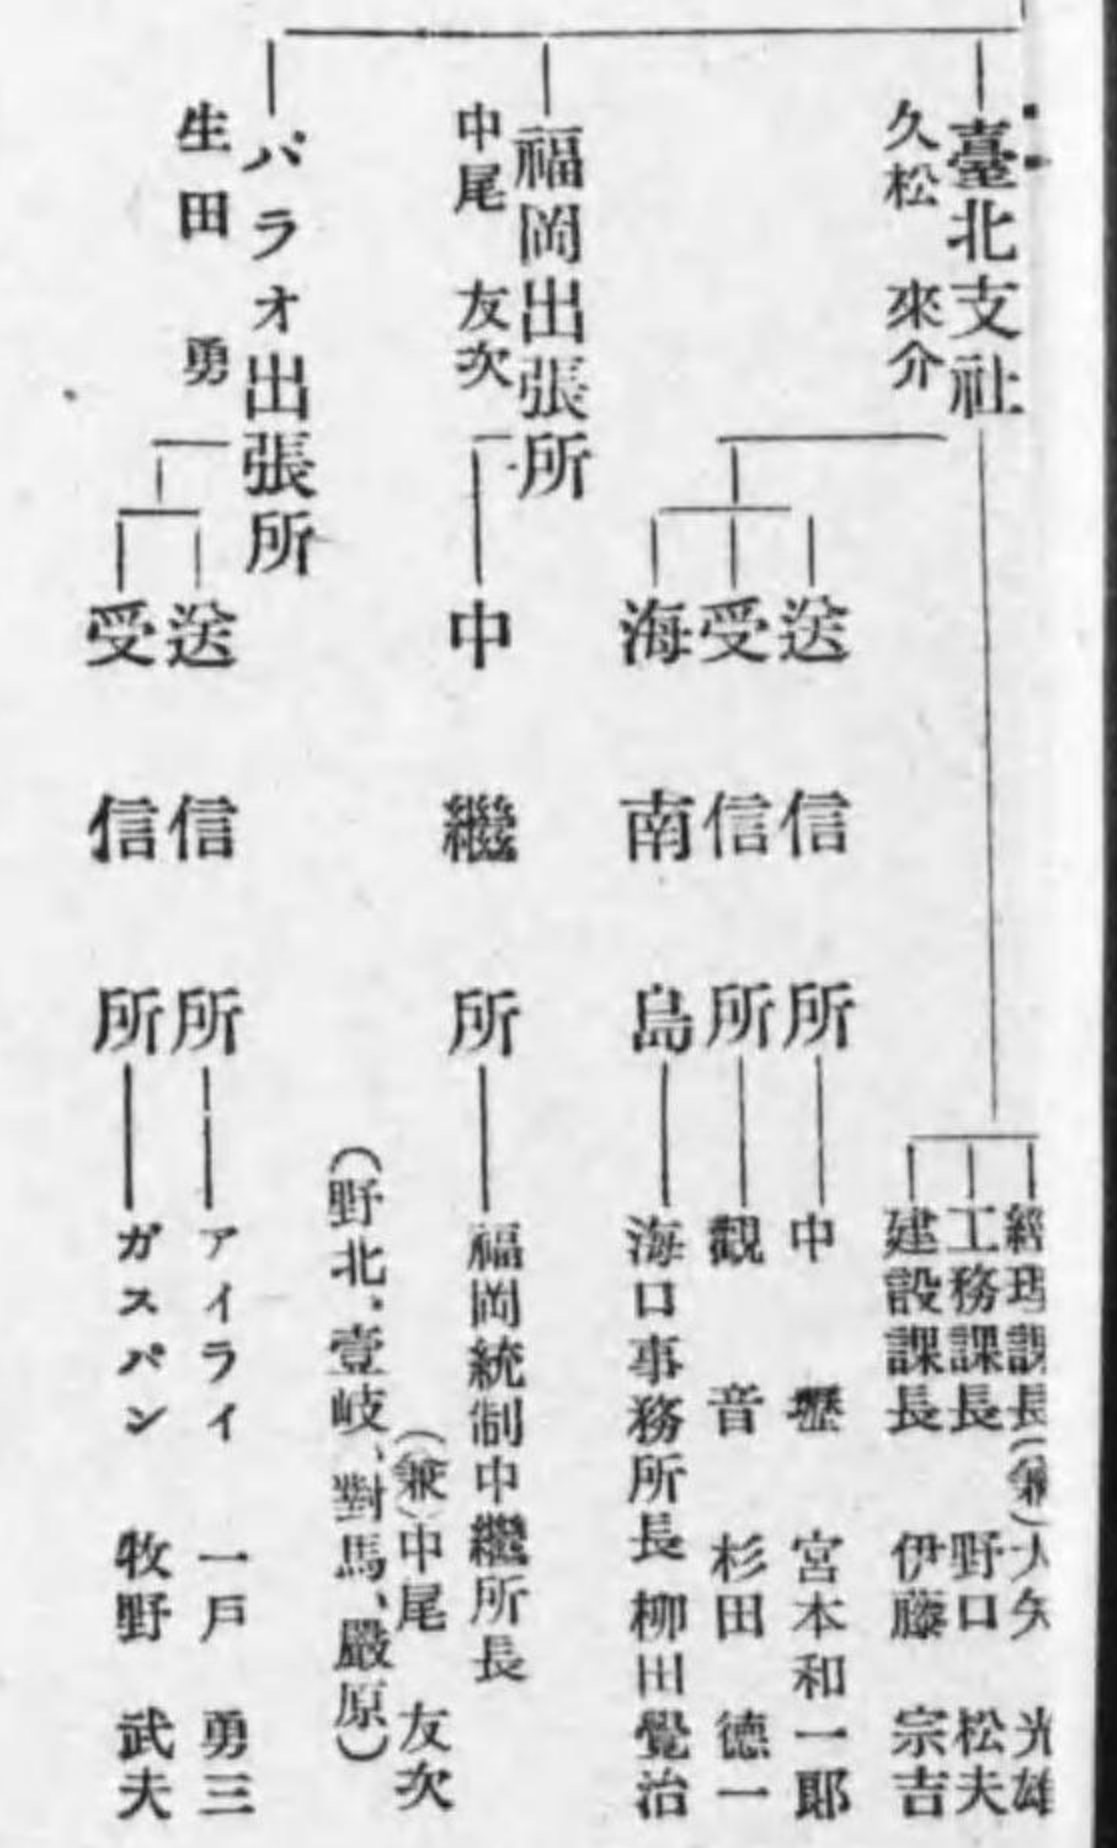 臺北支社
久松 來介
經理課長(兼)大矢 光雄
工務課長 野口 松夫
建設課長 伊藤 宗吉
送信所 中壢 宮本和一郎
受信所 觀音 杉田 德一
海南島 海口事務所長 柳田覺治
福岡出張所
中尾 友次
中繼所 福岡統制中繼所長
(兼)中尾 友次
(野北、壹岐、對馬、嚴原)
パラオ出張所
生田 勇
送信所 アイライ 一戸 勇三
受信所 ガスパン 牧野 武夫